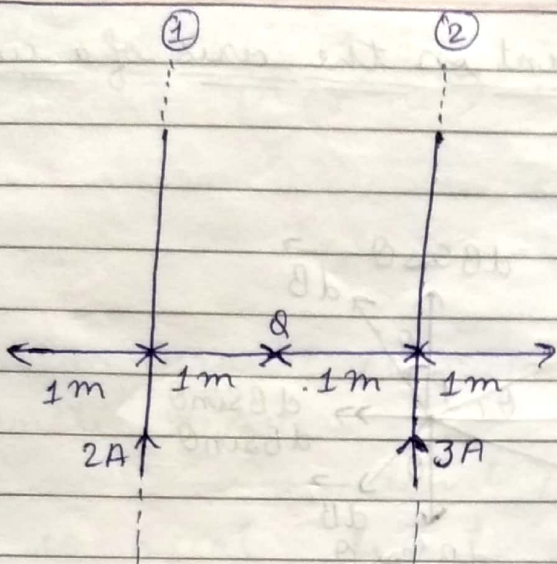 ① ②
Q
1m 1m .1m 1m
2A 3A